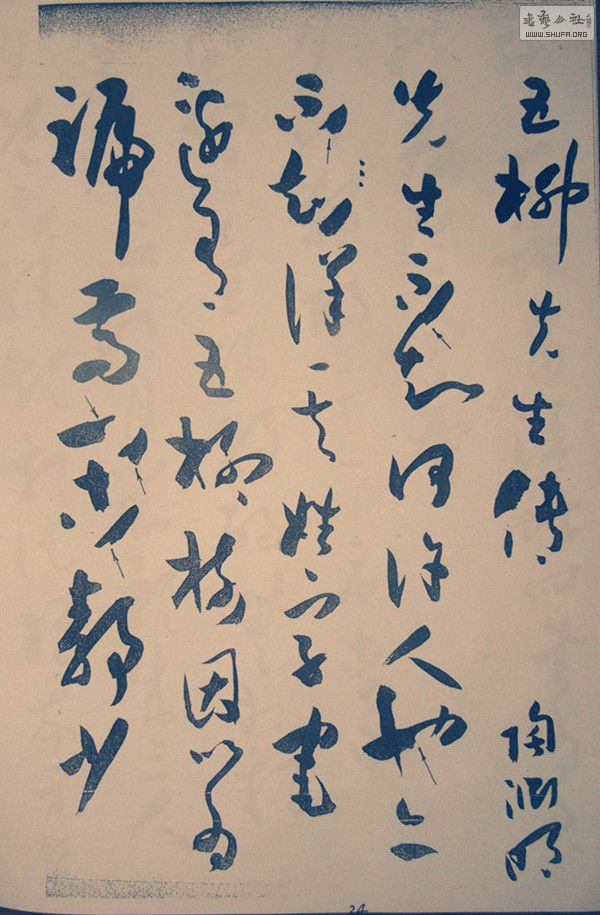 書藝公社
WWW.SHUFA.ORG
五柳先生傳 陶淵明
先生不知何許人也亦
不知詳其姓字宅
邊有五柳樹因以為
號焉閑靜少
24